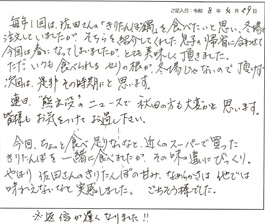 ご記入日：令和 8 年 4月 29日
毎年1回は、佐田さんの「きりたんぽ鍋」を食べたいと思い、冬場に
注文していましたが、そちらを紹介してくれた息子の帰省に合わせて
今回は春になってしまいましたが、とても美味しく頂きました。
ただ、いつも食べられる せりの根が、冬場しかないので頂けず
次回は、是非その時期にと思います。
連日、熊出没のニュースで秋田の方も大変かと思います。
皆様もお気をつけてお過し下さい。
今回、ちょっと食べ足りないなと、近くのスーパーで買った
きりたんぽを一緒に食べれましたが、その味の違いにびっくり。
やはり佐田さんのきりたんぽの甘み、なめらかさは他では
味わえないなと実感しました。ごちそう様でした。
※返信が遅くなりました!!